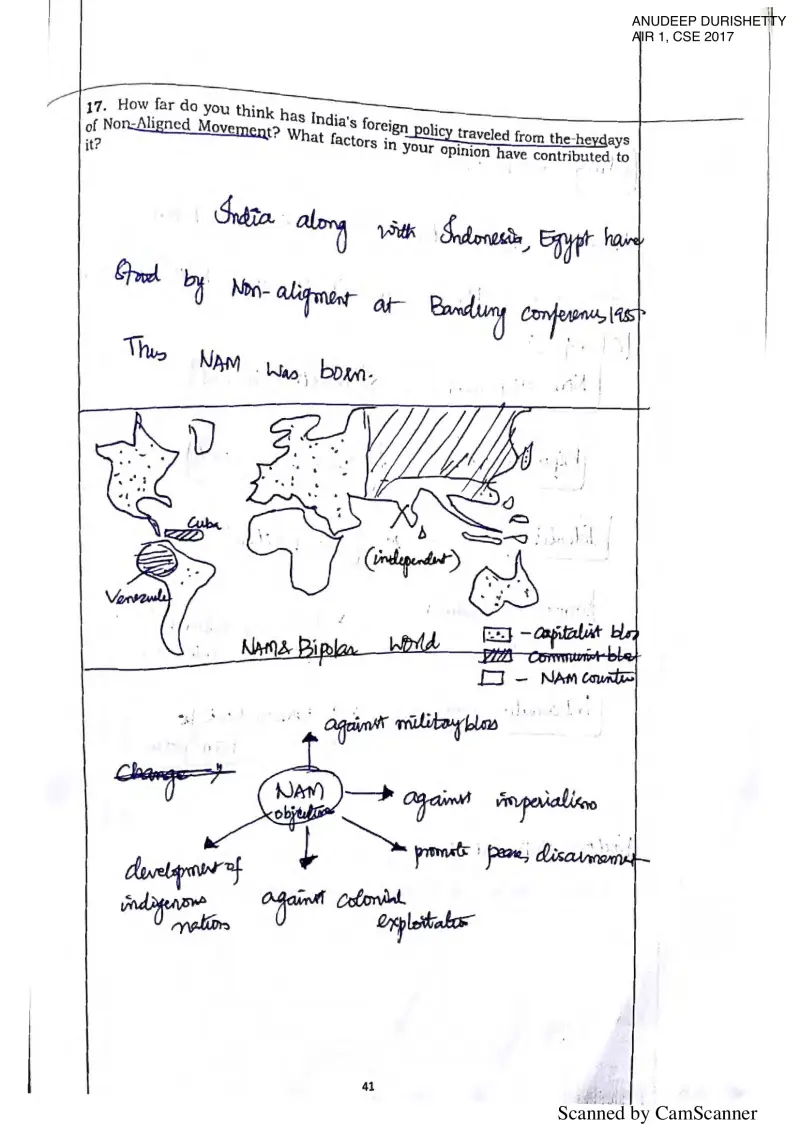 ANUDEEP DURISHETTY
AIR 1, CSE 2017
17. How far do you think has India's foreign policy traveled from the heydays
of Non-Aligned Movement? What factors in your opinion have contributed to
it?
India along with Indonesia, Egypt have
stood by Non-aligment at Bandung conferens, 1955
Thus NAM was born.
Cuba
(independent)
Venezuele
NAM & Bipolar World
- capitalist bloc
communist bloc
- NAM countries
against military blocs
Change →
NAM
objectives
against imperialism
promote peace, disarmament
development of
indigenous
nations
against colonial
exploitation
41
Scanned by CamScanner